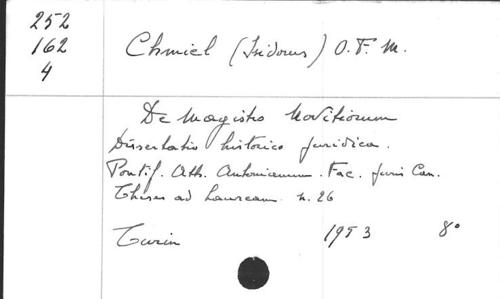 252
162
4
Chmiel (Isidorus) O.F.M.
De Magistro Novitiorum
Dissertatio historico juridica.
Pontif. Ath. Antonianum. Fac. juris Can.
Theses ad Lauream n. 26
Turin 1953 8°